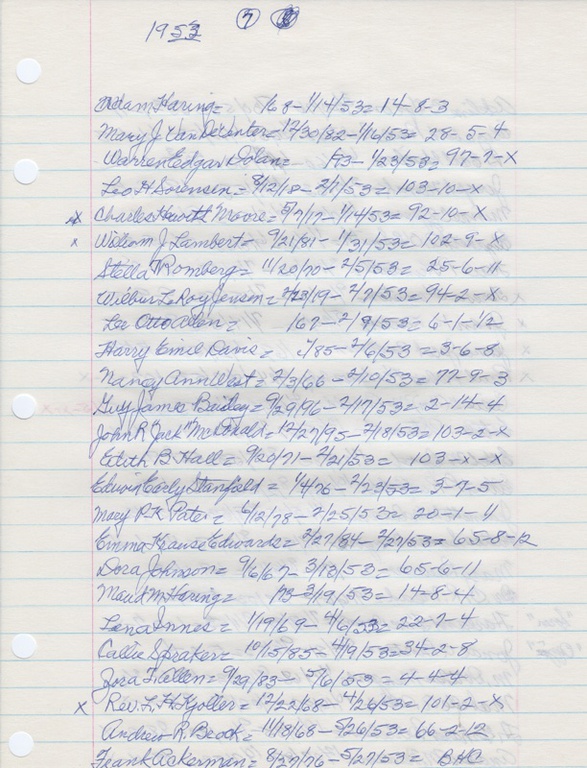 1953 7
Adam Haring = /68 - 1/14/53 = 14-8-3
Mary J. Van DeVenter = 12/30/82 - 1/16/53 = 28-5-4
Warren Edgar Dolan = /73 - 1/23/53 = 97-7-X
Leo H Sorensen = 8/12/18 - 2/1/53 = 103-10-X
X Charles Moore = 5/7/17 - 1/14/53 = 92-10-X
X William J. Lambert = 9/21/81 - 1/31/53 = 102-9-X
Stella Romberg = 11/20/70 - 2/5/53 = 25-6-11
Wilbur LeRoy Jenson = 2/23/19 - 2/7/53 = 94-2-X
Lee Otto Allen = /67 - 2/9/53 = 6-1-1/2
Harry Emil Davis = /85 - 2/6/53 = 3-6-8
Nancy Ann West = 2/3/66 - 2/10/53 = 77-9-3
Guy James Bailey = 9/29/96 - 2/17/53 = 2-14-4
John R "Jack" McDonald = 12/27/95 - 2/18/53 = 103-2-X
Edith B. Hall = 9/20/71 - 2/21/53 = 103-X-X
Edwin Early Stanfield = 1/4/76 - 2/23/53 = 3-7-5
Mary R. K. Pate = 6/12/78 - 2/25/53 = 20-1-11
Emma Krause Edwards = 2/27/84 - 2/27/53 = 65-8-12
Dora Johnson = 9/6/67 - 3/18/53 = 65-6-11
Maud M. Haring = /73 - 3/19/53 = 14-8-4
Lena Innes = 1/19/69 - 4/6/53 = 22-7-4
Callie Spraker = 10/5/85 - 4/9/53 = 34-2-8
Zora F. Allen = 9/29/83 - 5/6/53 = 4-4-4
X Rev. L. H. Kjoller = 12/22/68 - 4/26/53 = 101-2-X
Andrew R. Brock = 11/18/68 - 5/26/53 = 66-2-12
Frank Ackerman = 8/27/76 - 5/27/53 = BHC